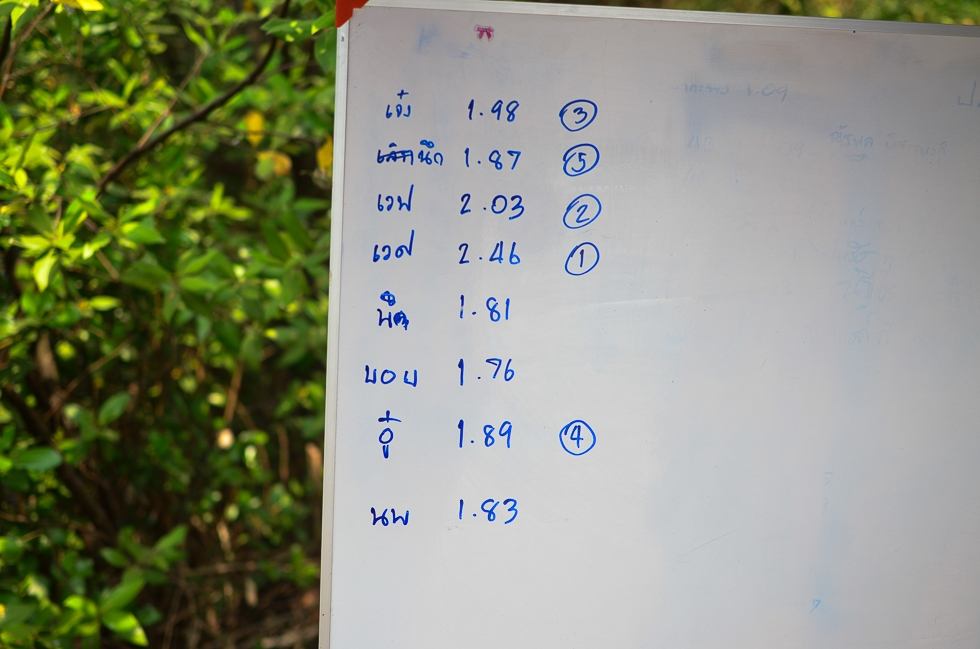 เจ๋ง 1.98 ③
นึก 1.87 ⑤
เวฟ 2.03 ②
เวส 2.46 ①
1.81
บอย 1.76
อู๋ 1.89 ④
นพ 1.83